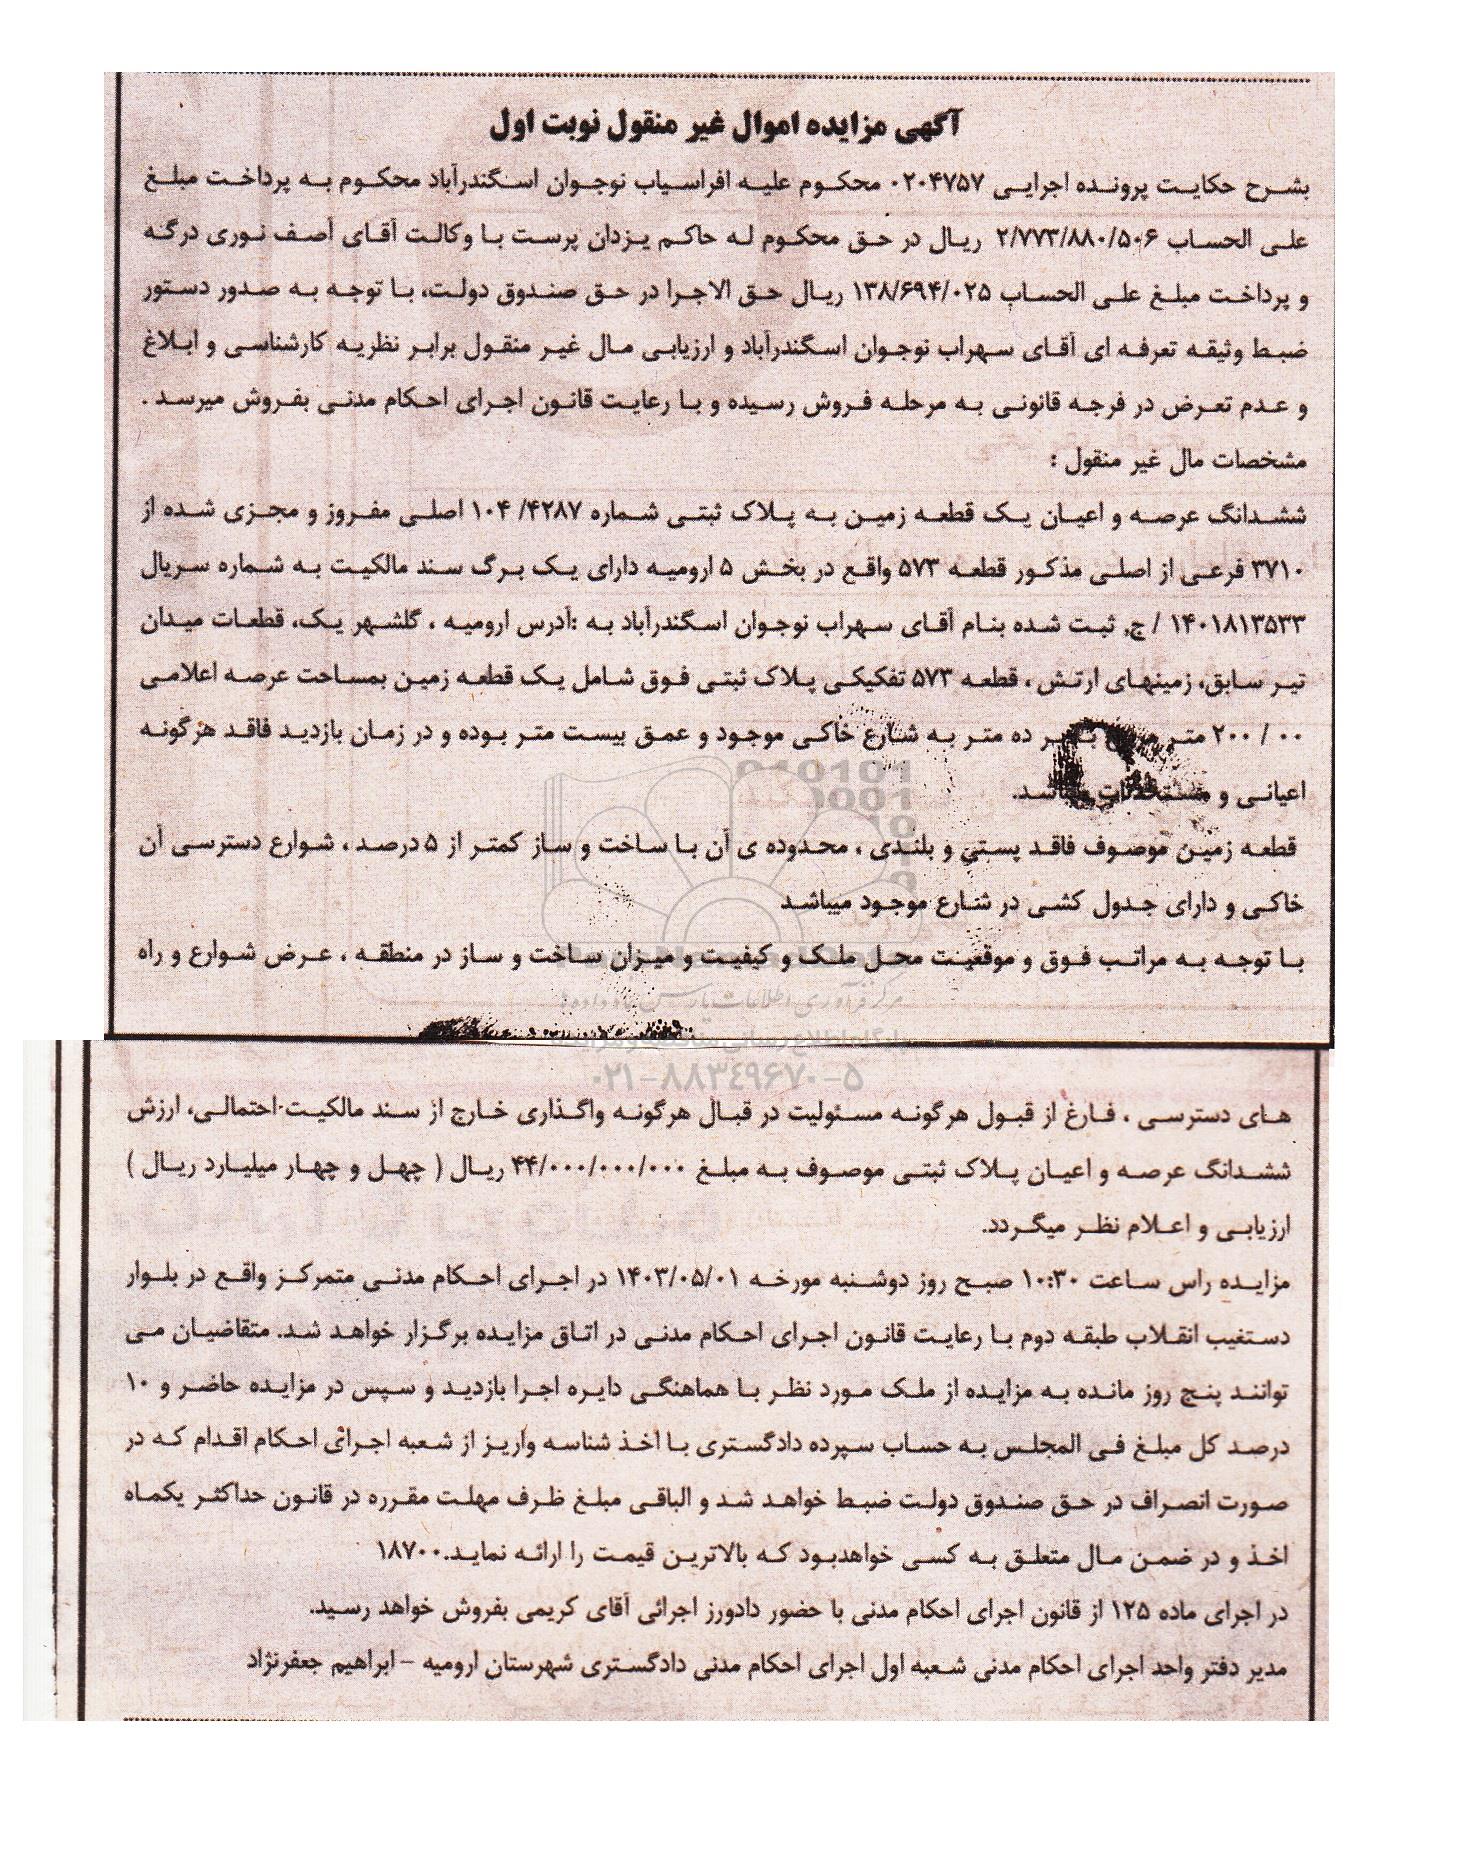 آگهی مزایده اموال غیر منقول نوبت اول
بشرح حکایت پرونده اجرایی ۰۲۰۴۷۵۷ محکوم علیه افراسیاب نوجوان اسگندرآباد محکوم به پرداخت مبلغ
علی الحساب ۲/۷۷۳/۸۸۰/۵۰۶ ریال در حق محکوم له حاکم یزدان پرست با وکالت آقای آصف نوری درگه
و پرداخت مبلغ علی الحساب ۱۳۸/۶۹۴/۰۲۵ ریال حق الاجرا در حق صندوق دولت، با توجه به صدور دستور
ضبط وثیقه تعرفه ای آقای سهراب نوجوان اسگندرآباد و ارزیابی مال غیر منقول برابر نظریه کارشناسی و ابلاغ
و عدم تعرض در فرجه قانونی به مرحله فروش رسیده و با رعایت قانون اجرای احکام مدنی بفروش میرسد .
مشخصات مال غیر منقول :
ششدانگ عرصه و اعیان یک قطعه زمین به پلاک ثبتی شماره ۴۲۸۷/ ۱۰۴ اصلی مفروز و مجزی شده از
۳۷۱۰ فرعی از اصلی مذکور قطعه ۵۷۳ واقع در بخش ۵ ارومیه دارای یک برگ سند مالکیت به شماره سریال
۱۴۰۱۸۱۳۵۳۳ / ج, ثبت شده بنام آقای سهراب نوجوان اسگندرآباد به :آدرس ارومیه ، گلشهر یک، قطعات میدان
تیر سابق، زمینهای ارتش ، قطعه ۵۷۳ تفکیکی پلاک ثبتی فوق شامل یک قطعه زمین بمساحت عرصه اعلامی
۰۰ / ۲۰۰ متر ده متر به شارع خاکی موجود و عمق بیست متر بوده و در زمان بازدید فاقد هرگونه
اعیانی و مستحدثات میباشد.
قطعه زمین موصوف فاقد پستی و بلندی ، محدوده ی آن با ساخت و ساز کمتر از ۵ درصد ، شوارع دسترسی آن
خاکی و دارای جدول کشی در شارع موجود میباشد
با توجه به مراتب فوق و موقعیت محل ملک و کیفیت و میزان ساخت و ساز در منطقه ، عرض شوارع و راه
مرکز فرآوری اطلاعات پارس نماد داده‌ها
پایگاه اطلاع رسانی مناقصه و مزایده
۰۲۱-۸۸۳۴۹۶۷۰-۵
های دسترسی ، فارغ از قبول هرگونه مسئولیت در قبال هرگونه واگذاری خارج از سند مالکیت احتمالی، ارزش
ششدانگ عرصه و اعیان پلاک ثبتی موصوف به مبلغ ۴۴/۰۰۰/۰۰۰/۰۰۰ ریال ( چهل و چهار میلیارد ریال )
ارزیابی و اعلام نظر میگردد.
مزایده راس ساعت ۱۰:۳۰ صبح روز دوشنبه مورخه ۱۴۰۳/۰۵/۰۱ در اجرای احکام مدنی متمرکز واقع در بلوار
دستغیب انقلاب طبقه دوم با رعایت قانون اجرای احکام مدنی در اتاق مزایده برگزار خواهد شد. متقاضیان می
توانند پنج روز مانده به مزایده از ملک مورد نظر با هماهنگی دایره اجرا بازدید و سپس در مزایده حاضر و ۱۰
درصد کل مبلغ فی المجلس به حساب سپرده دادگستری با اخذ شناسه واریز از شعبه اجرائی احکام اقدام که در
صورت انصراف در حق صندوق دولت ضبط خواهد شد و الباقی مبلغ ظرف مهلت مقرره در قانون حداکثر یکماه
اخذ و در ضمن مال متعلق به کسی خواهدبود که بالاترین قیمت را ارائه نماید.۱۸۷۰۰
در اجرای ماده ۱۲۵ از قانون اجرای احکام مدنی با حضور دادورز اجرائی آقای کریمی بفروش خواهد رسید.
مدیر دفتر واحد اجرای احکام مدنی شعبه اول اجرای احکام مدنی دادگستری شهرستان ارومیه – ابراهیم جعفرنژاد